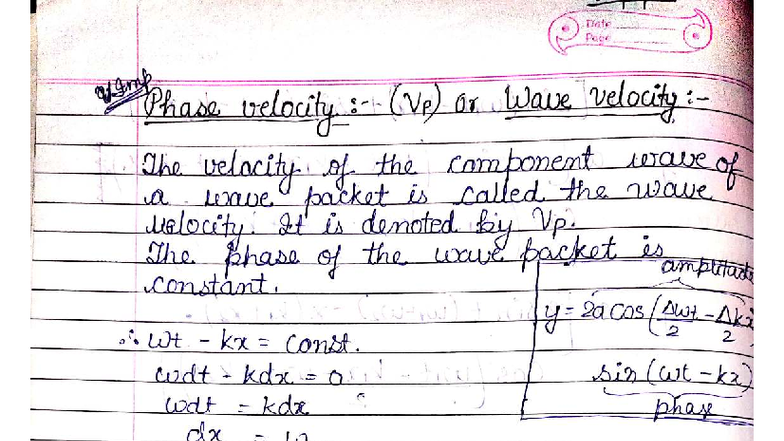 Date
Page
V.Imp
Phase velocity :- (Vp) or Wave Velocity :-
The velocity of the component wave of
a wave packet is called the wave
velocity. It is denoted by Vp.
The phase of the wave packet is
constant.
amplitude
y = 2a cos (Δωt/2 - Δkx/2)
∴ ωt - kx = const.
ωdt - kdx = 0
sin (ωt - kx)
ωdt = kdx
phase
dx = ω